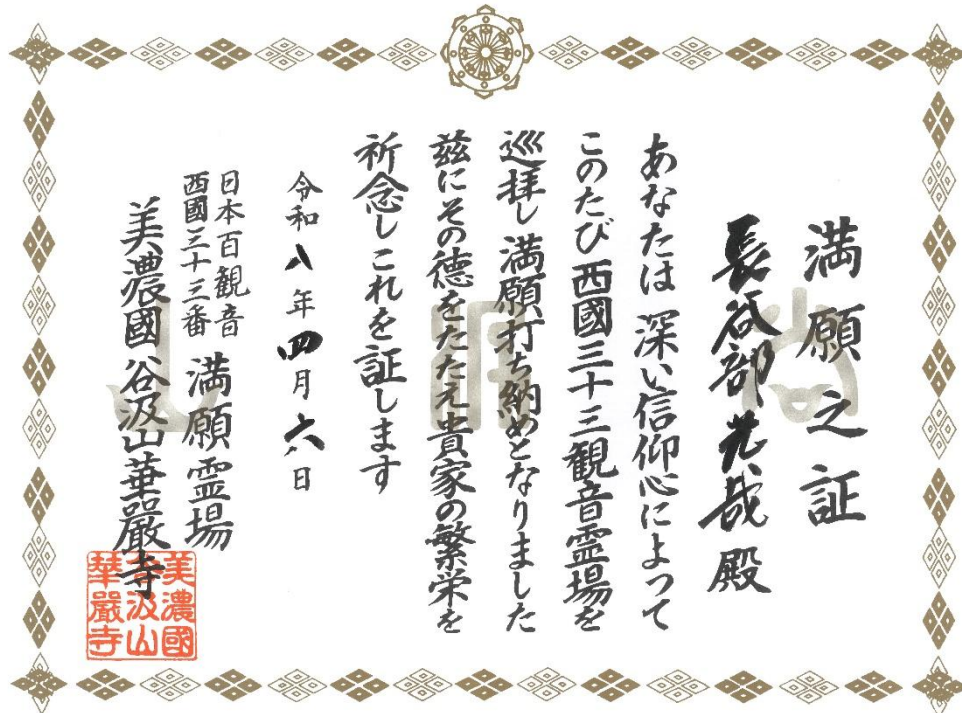 満願之証
長谷部光哉殿
あなたは深い信仰心によって
このたび西國三十三観音霊場を
巡拝し満願打ち納めとなりました
茲にその徳をたたえ貴家の繁栄を
祈念しこれを証します
令和八年四月六日
日本百観音
西國三十三番
満願霊場
美濃國谷汲山華嚴寺
美濃國
谷汲山
華嚴寺